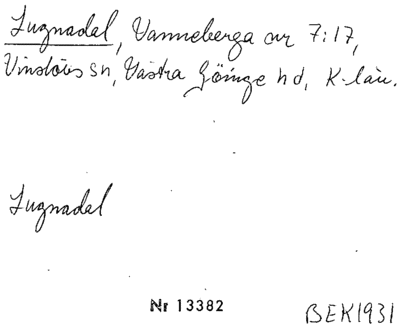 Lugnadal, Vanneberga nr 7:17,
Vinslövs sn, Västra Göinge hd, K-län.
Lugnadal
Nr 13382
BEK1931